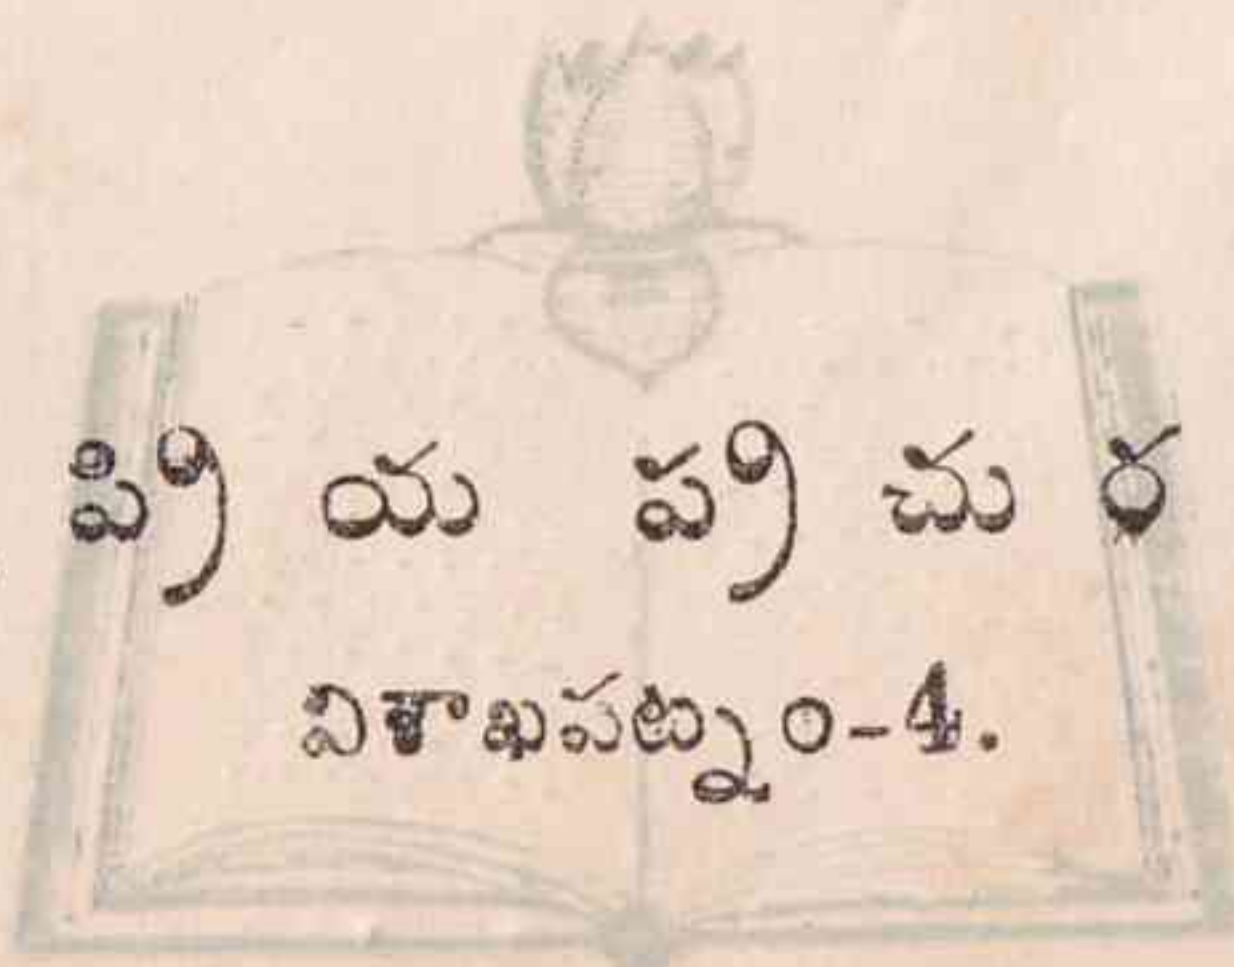 ప్రియ ప్రచుర
విశాఖపట్నం-4.